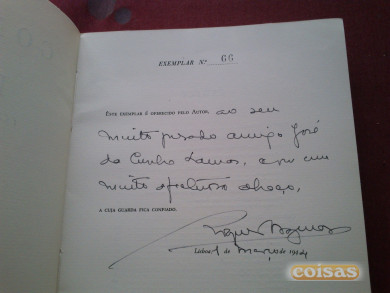 EXEMPLAR N.º 66
ESTE EXEMPLAR É OFERECIDO PELO AUTOR, ao seu
muito prezado amigo José
da Cunha Lamas, com um
muito afectuoso abraço,
A CUJA GUARDA FICA CONFIADO.
Lisboa, de Março de 194
coisas